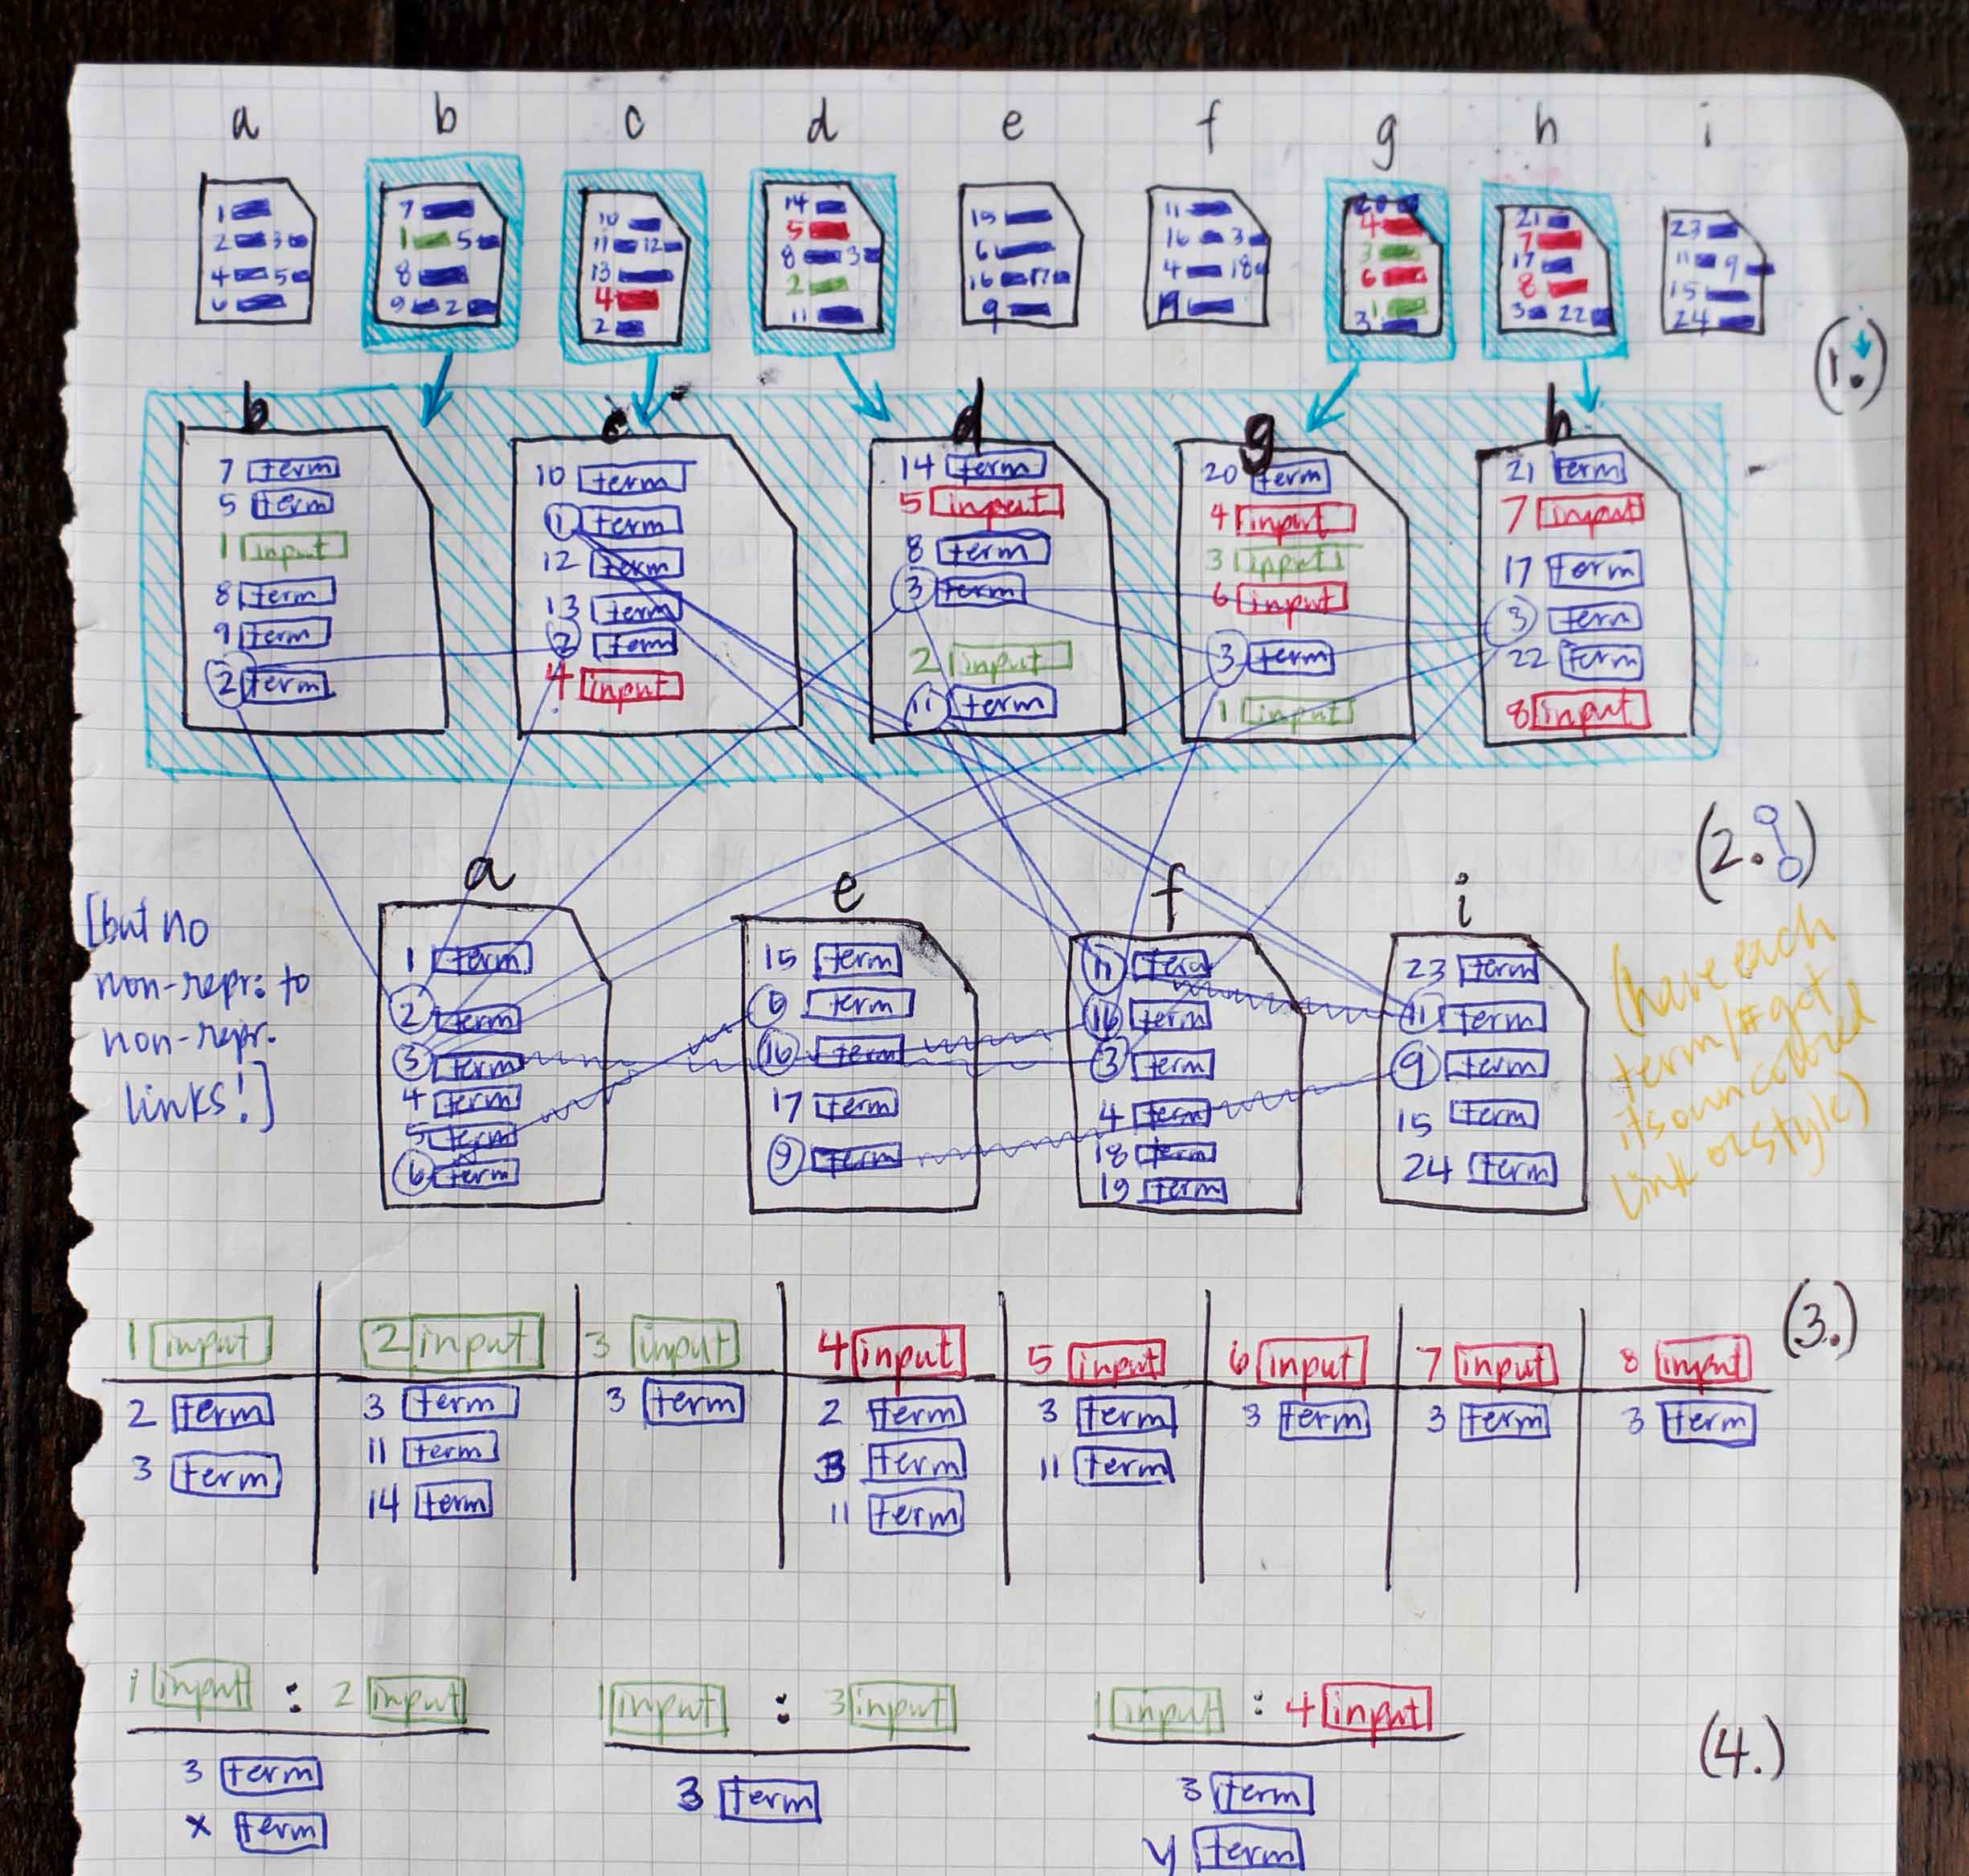 a b c d e f g h i
1
2 3
4 5
6
7
1 5
8
9 2
10
11 12
13
4
2
14
5
8 3
2
11
15
6
16 17
9
11
16 3
4 18
19
20
4
3
6
1
3
21
7
17
8
3 22
23
11 9
15
24
(1.)
b
7 term
5 term
1 input
8 term
9 term
2 term
c
10 term
11 term
12 term
13 term
2 term
4 input
d
14 term
5 input
8 term
3 term
2 input
11 term
g
20 term
4 input
3 input
6 input
3 term
1 input
h
21 term
7 input
17 term
3 term
22 term
8 input
(2.)
[but no
non-repr. to
non-repr.
links!]
a
1 term
2 term
3 term
4 term
5 term
6 term
e
15 term
6 term
16 term
17 term
9 term
f
11 term
16 term
3 term
4 term
18 term
19 term
i
23 term
11 term
9 term
15 term
24 term
(have each
term/# get
its own colored
link or style)
(3.)
1 input
2 term
3 term
2 input
3 term
11 term
14 term
3 input
3 term
4 input
2 term
3 term
11 term
5 input
3 term
11 term
6 input
3 term
7 input
3 term
8 input
3 term
1 input : 2 input
3 term
x term
1 input : 3 input
3 term
1 input : 4 input
3 term
y term
(4.)